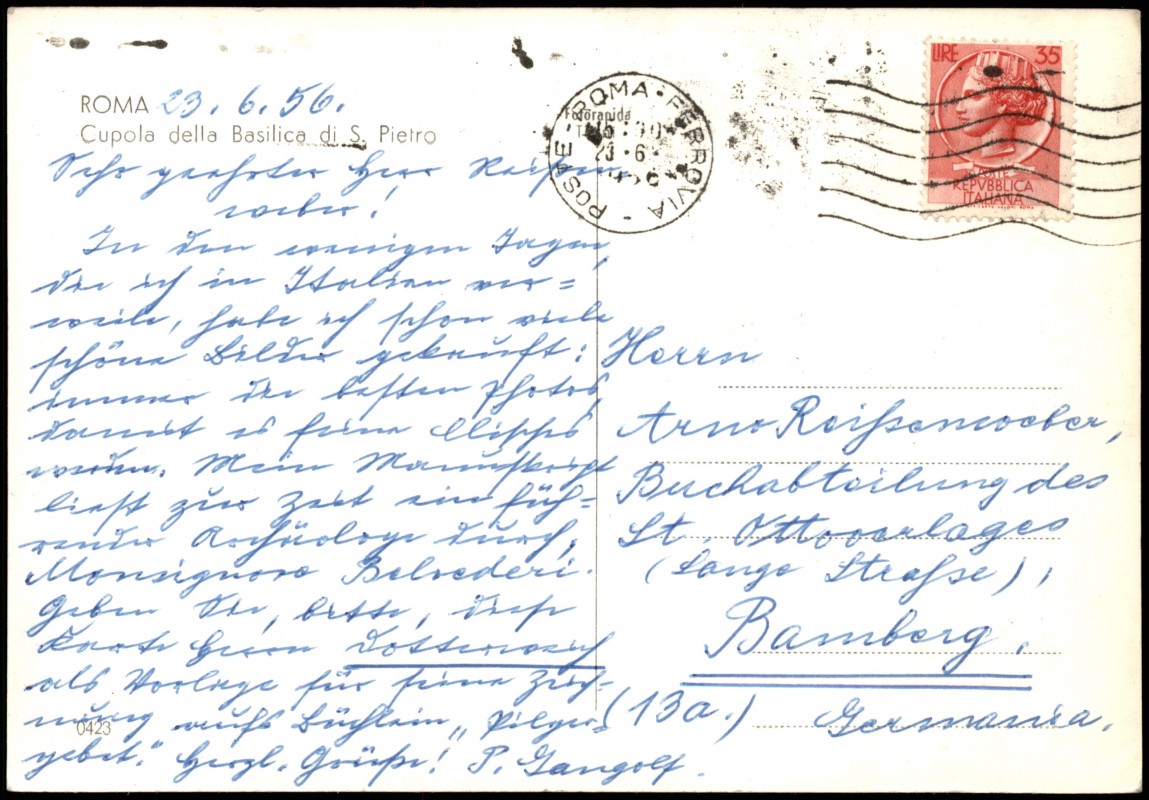 ROMA 23. 6. 56.
Cupola della Basilica di S. Pietro
Sehr geehrter Herr Reißen-
weber!
In den wenigen Tagen,
die ich in Italien ver=
weile, habe ich schon viele
schöne Bilder gekauft:
immer die besten Photos,
damit es feine Clisches
werden. Mein Manuskript
liest zur Zeit ein füh=
render Archäologe durch,
Monsignore Belvederi.
Geben Sie, bitte, diese
Karte Herrn Dotterweich
als Vorlage für seine Zeich-
nung aufs Büchlein „Pilger-
gebet." Herzl. Grüße! P. Gangolf.
0423
POSTE ROMA · FERROVIA
23 · 6
LIRE 35
POSTE
REPVBBLICA
ITALIANA
Herrn
Arno Reißenweber,
Buchabteilung des
St. Ottoverlages
(Lange Straße),
Bamberg.
(13a.) Germania.